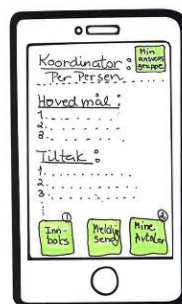 Koordinator:
Per Persen
Min
ansvars
gruppe
Hoved mål:
1.
2.
3.
Tiltak:
1.
2.
3.
①
Inn-
boks
Melding
send
②
Mine
Avtaler